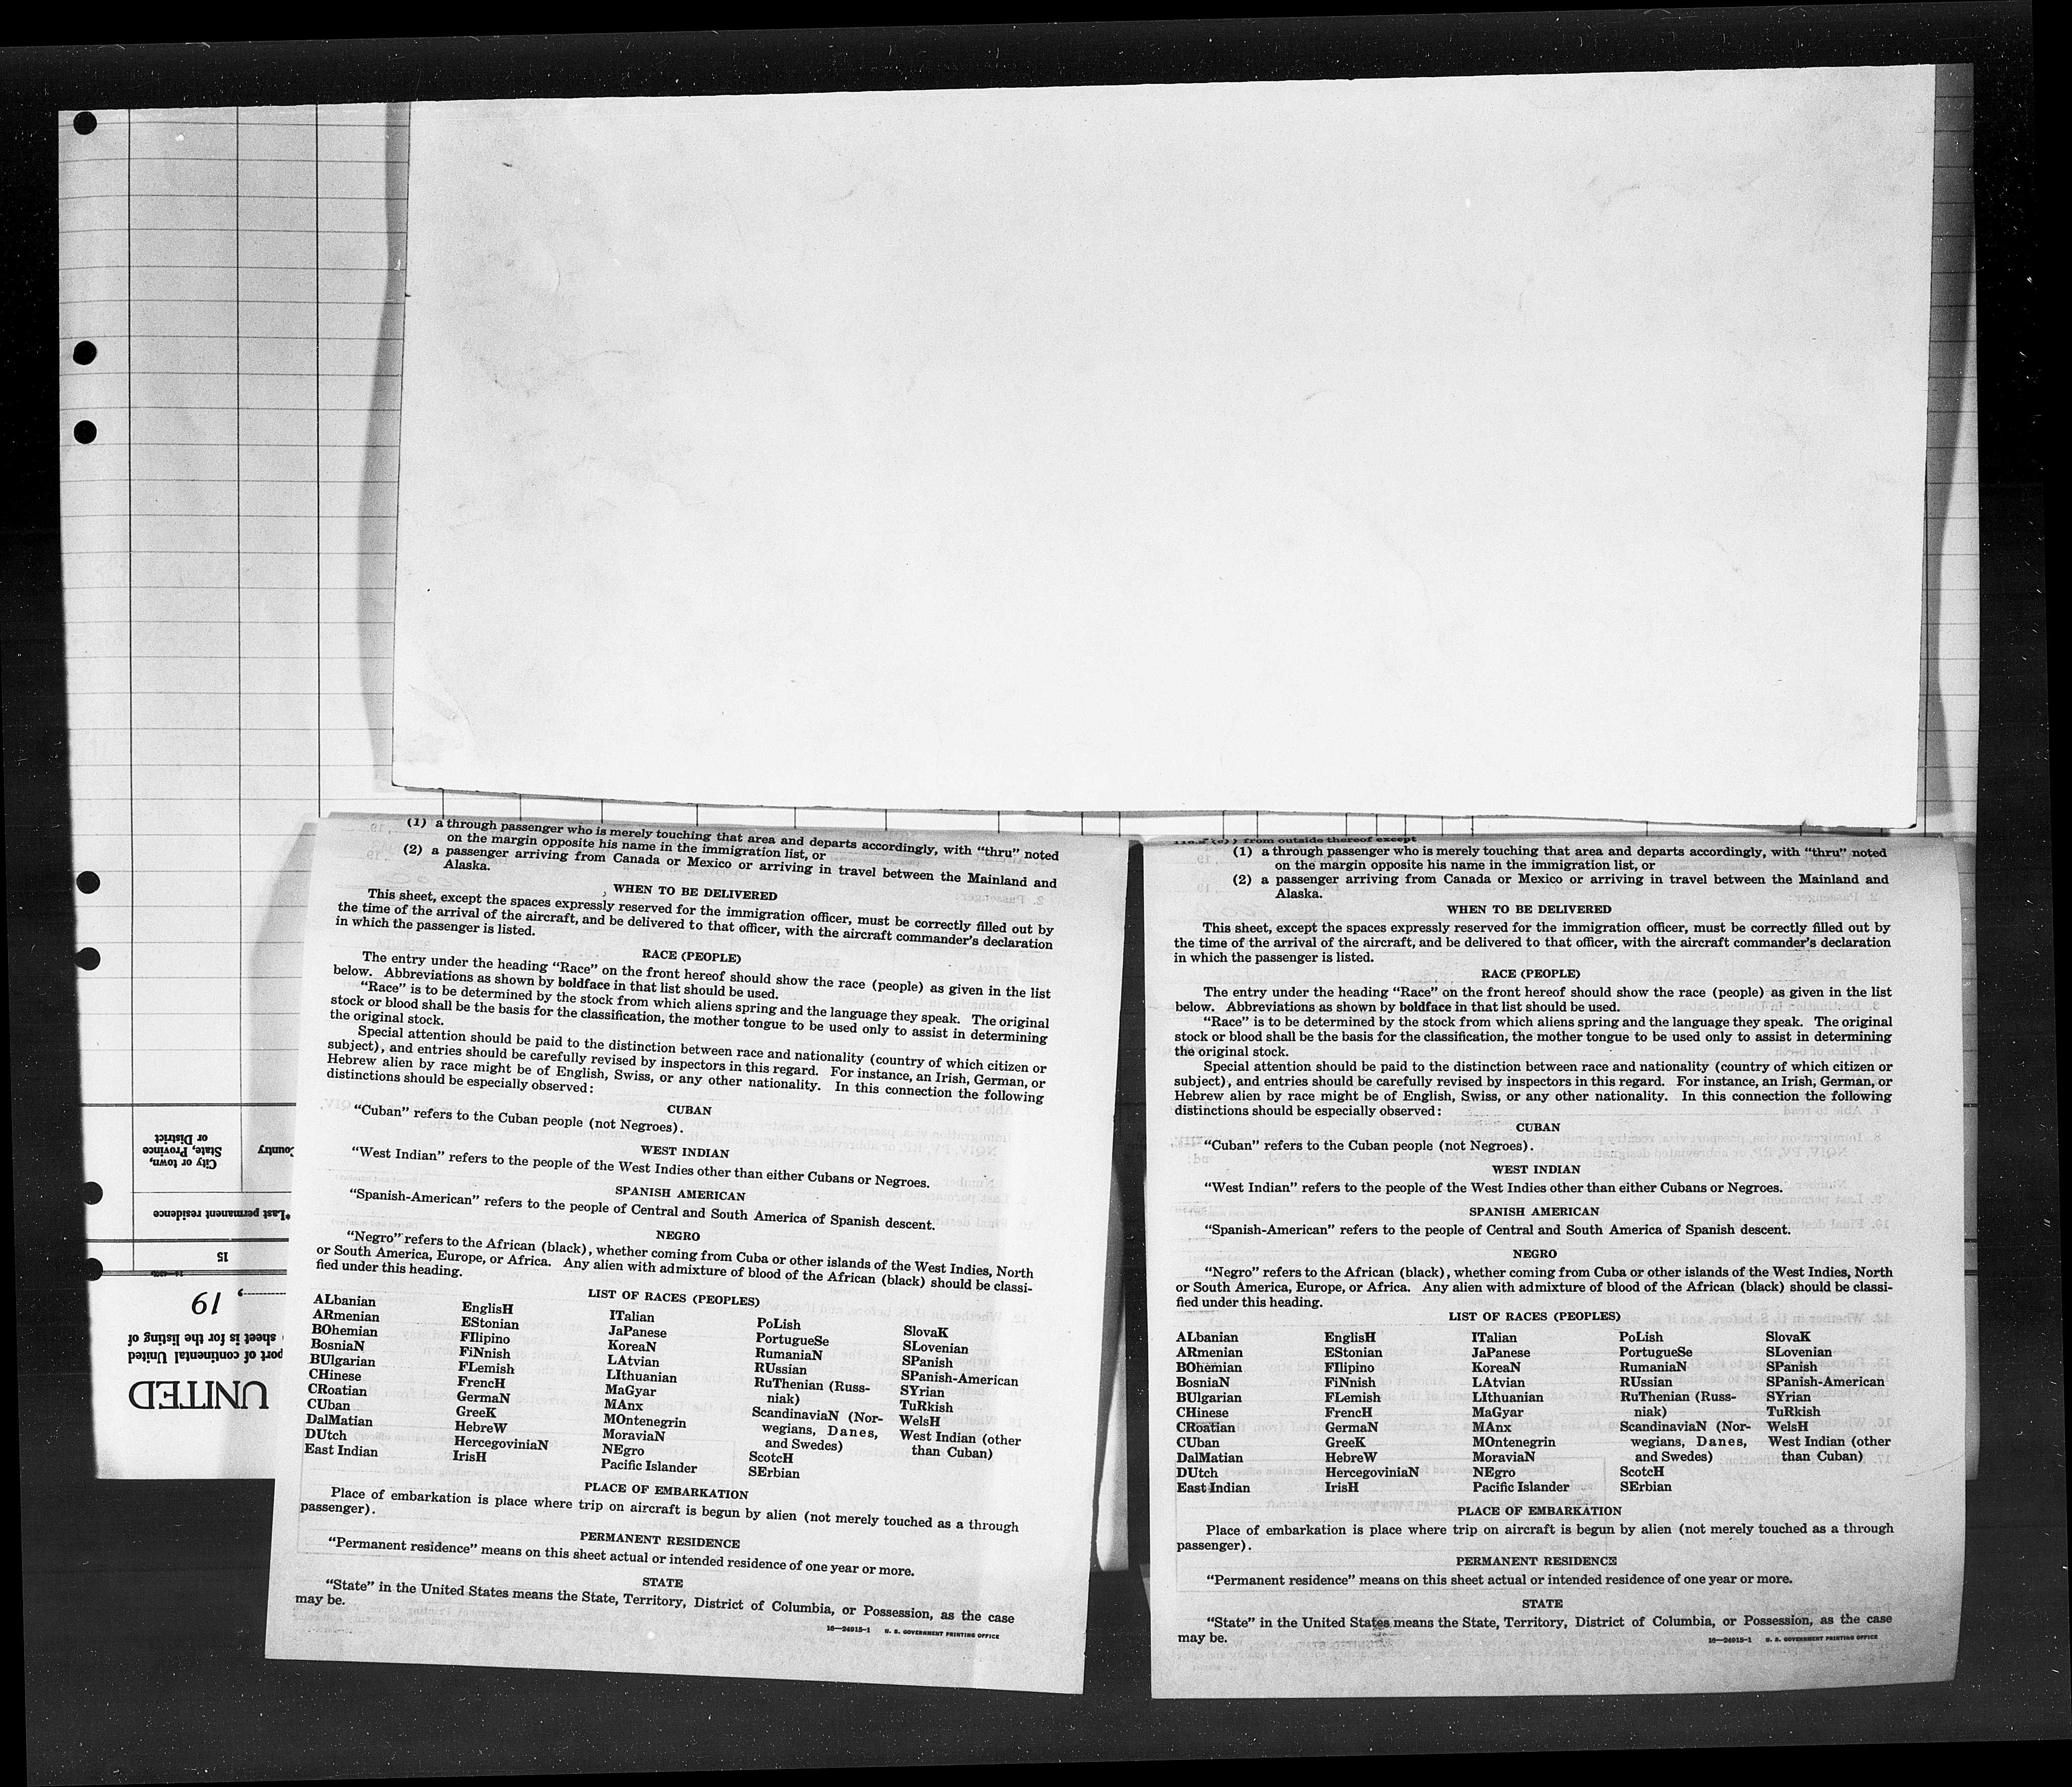 (1) a through passenger who is merely touching that area and departs accordingly, with “thru” noted
on the margin opposite his name in the immigration list, or
(2) a passenger arriving from Canada or Mexico or arriving in travel between the Mainland and
Alaska.
WHEN TO BE DELIVERED
This sheet, except the spaces expressly reserved for the immigration officer, must be correctly filled out by
the time of the arrival of the aircraft, and be delivered to that officer, with the aircraft commander’s declaration
in which the passenger is listed.
RACE (PEOPLE)
The entry under the heading “Race” on the front hereof should show the race (people) as given in the list
below. Abbreviations as shown by boldface in that list should be used.
“Race” is to be determined by the stock from which aliens spring and the language they speak. The original
stock or blood shall be the basis for the classification, the mother tongue to be used only to assist in determining
the original stock.
Special attention should be paid to the distinction between race and nationality (country of which citizen or
subject), and entries should be carefully revised by inspectors in this regard. For instance, an Irish, German, or
Hebrew alien by race might be of English, Swiss, or any other nationality. In this connection the following
distinctions should be especially observed:
CUBAN
“Cuban” refers to the Cuban people (not Negroes).
WEST INDIAN
“West Indian” refers to the people of the West Indies other than either Cubans or Negroes.
SPANISH AMERICAN
“Spanish-American” refers to the people of Central and South America of Spanish descent.
NEGRO
“Negro” refers to the African (black), whether coming from Cuba or other islands of the West Indies, North
or South America, Europe, or Africa. Any alien with admixture of blood of the African (black) should be classi-
fied under this heading.
LIST OF RACES (PEOPLES)
ALbanian
ARmenian
BOhemian
BosniaN
BUlgarian
CHinese
CRoatian
CUban
DalMatian
DUtch
East Indian
EnglisH
EStonian
FIlipino
FiNnish
FLemish
FrencH
GermaN
GreeK
HebreW
HercegoviniaN
IrisH
ITalian
JaPanese
KoreaN
LAtvian
LIthuanian
MaGyar
MAnx
MOntenegrin
MoraviaN
NEgro
Pacific Islander
PoLish
PortugueSe
RumaniaN
RUssian
RuThenian (Russ-
niak)
ScandinaviaN (Nor-
wegians, Danes,
and Swedes)
ScotcH
SErbian
SlovaK
SLovenian
SPanish
SPanish-American
SYrian
TuRkish
WelsH
West Indian (other
than Cuban)
PLACE OF EMBARKATION
Place of embarkation is place where trip on aircraft is begun by alien (not merely touched as a through
passenger).
PERMANENT RESIDENCE
“Permanent residence” means on this sheet actual or intended residence of one year or more.
STATE
“State” in the United States means the State, Territory, District of Columbia, or Possession, as the case
may be.
16—24915-1 U. S. GOVERNMENT PRINTING OFFICE
from outside thereof except
(1) a through passenger who is merely touching that area and departs accordingly, with “thru” noted
on the margin opposite his name in the immigration list, or
(2) a passenger arriving from Canada or Mexico or arriving in travel between the Mainland and
Alaska.
WHEN TO BE DELIVERED
This sheet, except the spaces expressly reserved for the immigration officer, must be correctly filled out by
the time of the arrival of the aircraft, and be delivered to that officer, with the aircraft commander’s declaration
in which the passenger is listed.
RACE (PEOPLE)
The entry under the heading “Race” on the front hereof should show the race (people) as given in the list
below. Abbreviations as shown by boldface in that list should be used.
“Race” is to be determined by the stock from which aliens spring and the language they speak. The original
stock or blood shall be the basis for the classification, the mother tongue to be used only to assist in determining
the original stock.
Special attention should be paid to the distinction between race and nationality (country of which citizen or
subject), and entries should be carefully revised by inspectors in this regard. For instance, an Irish, German, or
Hebrew alien by race might be of English, Swiss, or any other nationality. In this connection the following
distinctions should be especially observed:
CUBAN
“Cuban” refers to the Cuban people (not Negroes).
WEST INDIAN
“West Indian” refers to the people of the West Indies other than either Cubans or Negroes.
SPANISH AMERICAN
“Spanish-American” refers to the people of Central and South America of Spanish descent.
NEGRO
“Negro” refers to the African (black), whether coming from Cuba or other islands of the West Indies, North
or South America, Europe, or Africa. Any alien with admixture of blood of the African (black) should be classi-
fied under this heading.
LIST OF RACES (PEOPLES)
ALbanian
ARmenian
BOhemian
BosniaN
BUlgarian
CHinese
CRoatian
CUban
DalMatian
DUtch
East Indian
EnglisH
EStonian
FIlipino
FiNnish
FLemish
FrencH
GermaN
GreeK
HebreW
HercegoviniaN
IrisH
ITalian
JaPanese
KoreaN
LAtvian
LIthuanian
MaGyar
MAnx
MOntenegrin
MoraviaN
NEgro
Pacific Islander
PoLish
PortugueSe
RumaniaN
RUssian
RuThenian (Russ-
niak)
ScandinaviaN (Nor-
wegians, Danes,
and Swedes)
ScotcH
SErbian
SlovaK
SLovenian
SPanish
SPanish-American
SYrian
TuRkish
WelsH
West Indian (other
than Cuban)
PLACE OF EMBARKATION
Place of embarkation is place where trip on aircraft is begun by alien (not merely touched as a through
passenger).
PERMANENT RESIDENCE
“Permanent residence” means on this sheet actual or intended residence of one year or more.
STATE
“State” in the United States means the State, Territory, District of Columbia, or Possession, as the case
may be.
16—24915-1 U. S. GOVERNMENT PRINTING OFFICE
UNITED
port of continental United
sheet is for the listing of
, 19
15
*Last permanent residence
Country
City or town,
State, Province
or District